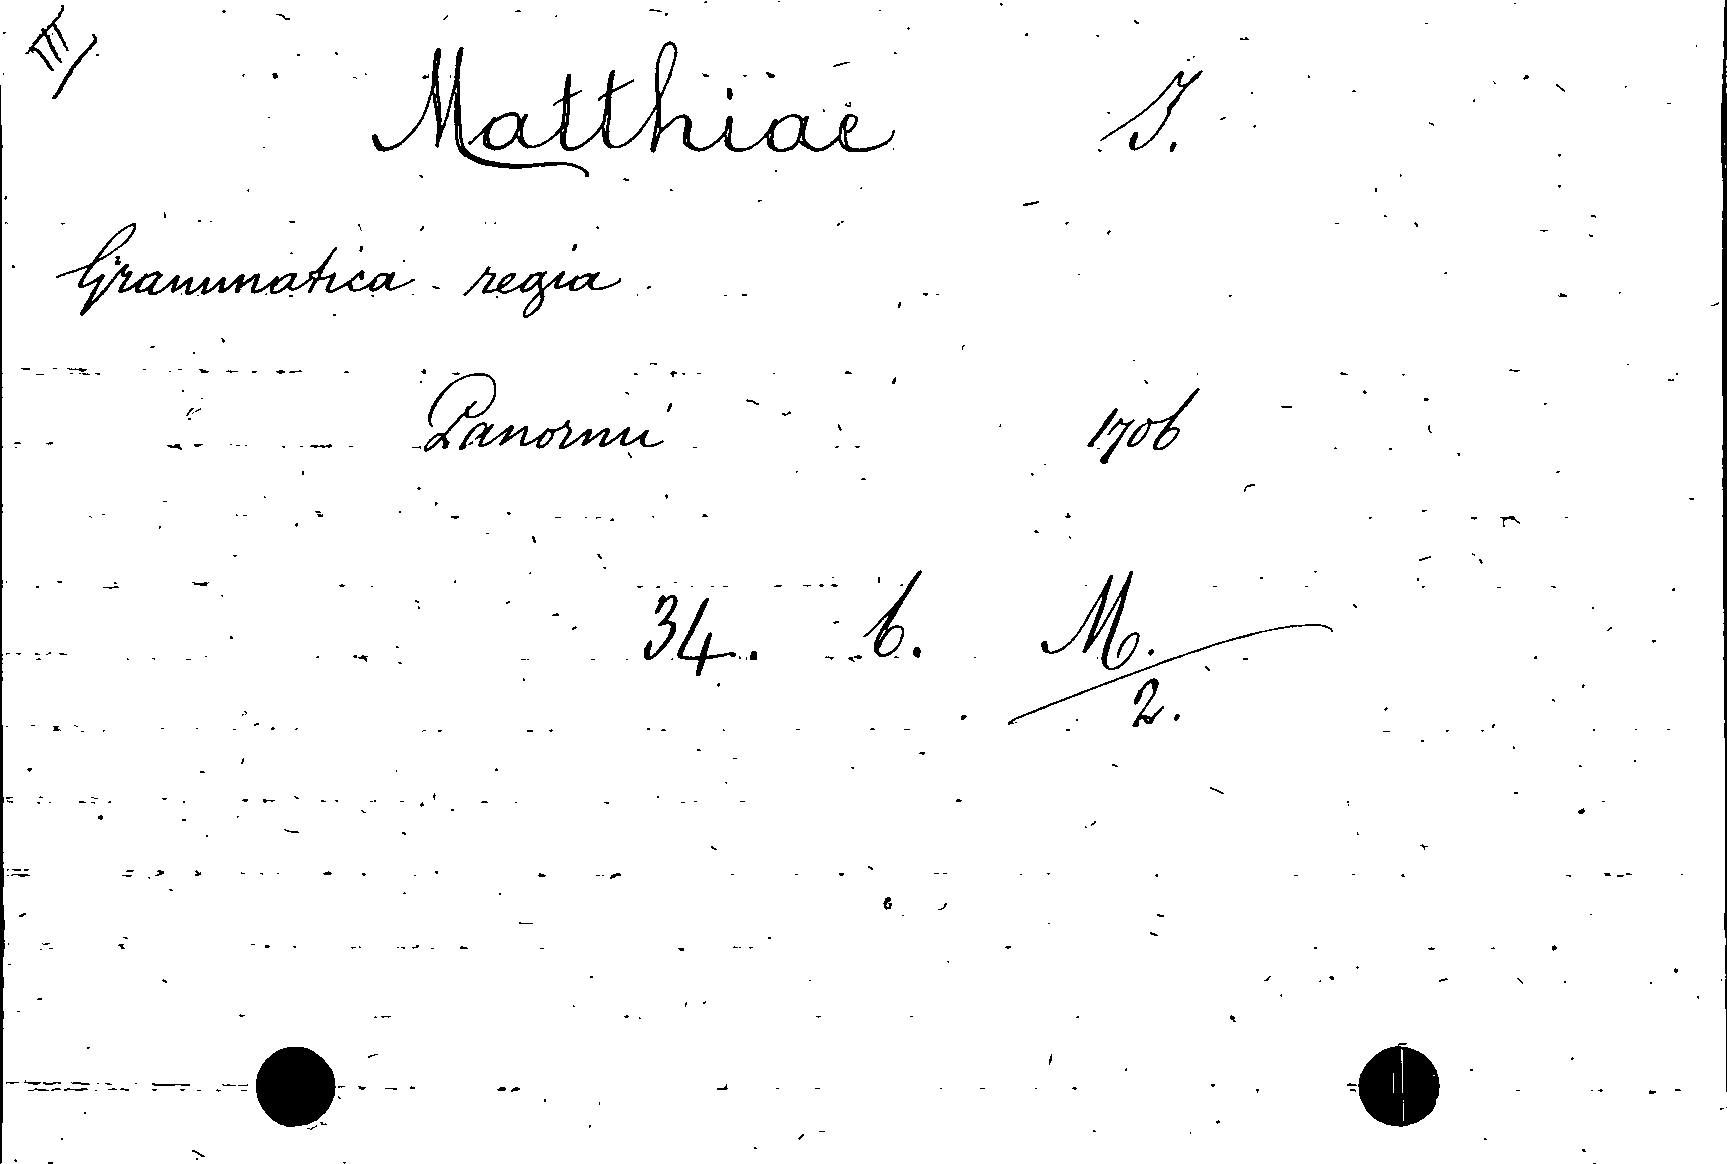 III
Matthiae J.
Grammatica regia
Panormi 1706
34. b. M.
2.